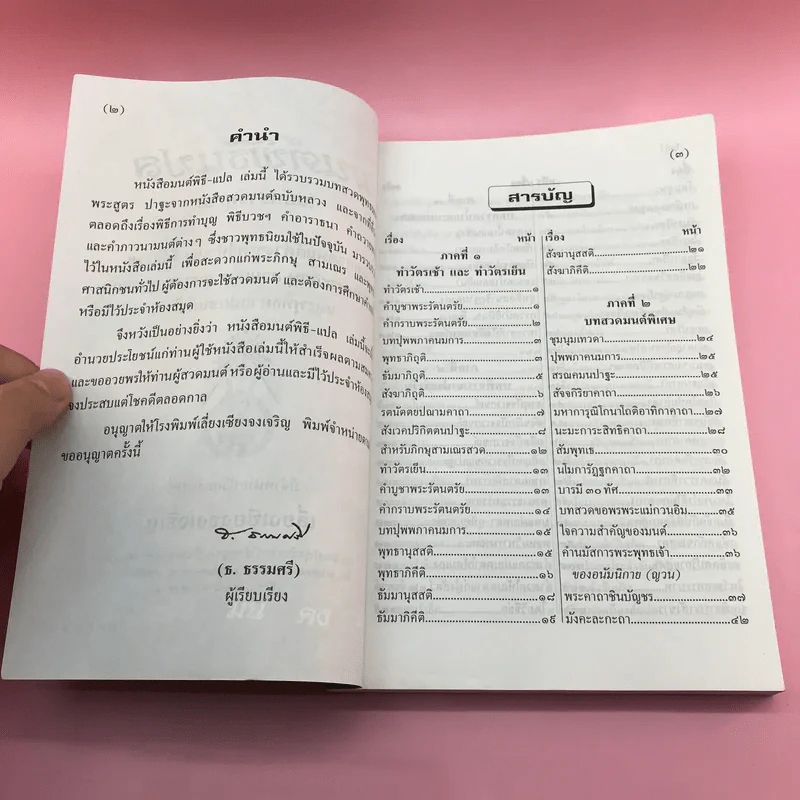 (๒)
คำนำ
หนังสือมนต์พิธี-แปล เล่มนี้ ได้รวบรวมบทสวดพุทธ
พระสูตร ปาฐะจากหนังสือสวดมนต์ฉบับหลวง และจากที่
ตลอดถึงเรื่องพิธีการทำบุญ พิธีบวชฯ คำอาราธนา คำถวาย
และคำภาวนามนต์ต่างๆ ซึ่งชาวพุทธนิยมใช้ในปัจจุบัน มารวบ
ไว้ในหนังสือเล่มนี้ เพื่อสะดวกแก่พระภิกษุ สามเณร และพุท
ศาสนิกชนทั่วไป ผู้ต้องการจะใช้สวดมนต์ และต้องการศึกษา
หรือมีไว้ประจำห้องสมุด
จึงหวังเป็นอย่างยิ่งว่า หนังสือมนต์พิธี-แปล เล่มนี้จะ
อำนวยประโยชน์แก่ท่านผู้ใช้หนังสือเล่มนี้ให้สำเร็จผลตาม
และขออวยพรให้ท่านผู้สวดมนต์ หรือผู้อ่านและมีไว้ประจำห้อง
จงประสบแต่โชคดีตลอดกาล
อนุญาตให้โรงพิมพ์เลี่ยงเซียงจงเจริญ พิมพ์จำหน่าย
ขออนุญาตครั้งนี้
(ธ. ธรรมศรี)
ผู้เรียบเรียง
(๓)
สารบัญ
เรื่อง หน้า
ภาคที่ ๑
ทำวัตรเช้า และ ทำวัตรเย็น
ทำวัตรเช้า ๑
คำบูชาพระรัตนตรัย ๑
คำกราบพระรัตนตรัย ๒
บทปุพพภาคนมการ ๓
พุทธาภิถุติ ๓
ธัมมาภิถุติ ๕
สังฆาภิถุติ ๖
รตนัตตยปณามคาถา ๗
สังเวคปริกิตตนปาฐะ ๘
สำหรับภิกษุสามเณรสวด ๑๒
ทำวัตรเย็น ๑๓
คำบูชาพระรัตนตรัย ๑๓
คำกราบพระรัตนตรัย ๑๔
บทปุพพภาคนมการ ๑๕
พุทธานุสสติ ๑๕
พุทธาภิคีติ ๑๖
ธัมมานุสสติ ๑๘
ธัมมาภิคีติ ๑๙
เรื่อง หน้า
สังฆานุสสติ ๒๑
สังฆาภิคีติ ๒๒
ภาคที่ ๒
บทสวดมนต์พิเศษ
ชุมนุมเทวดา ๒๔
ปุพพภาคนมการ ๒๕
สรณคมนปาฐะ ๒๕
สัจจกิริยาคาถา ๒๖
มหาการุณิโกนาโถติอาทิกาคาถา ๒๗
นะมะการะสิทธิคาถา ๒๘
สัมพุทเธ ๓๐
นโมการัฏฐกคาถา ๓๒
บารมี ๓๐ ทัศ ๓๓
บทสวดขอพรพระแม่กวนอิม ๓๕
ใจความสำคัญของมนต์ ๓๖
คำนมัสการพระพุทธเจ้า ๓๖
ของอนัมนิกาย (ญวน)
พระคาถาชินบัญชร ๓๗
มังคะละกะถา ๔๒